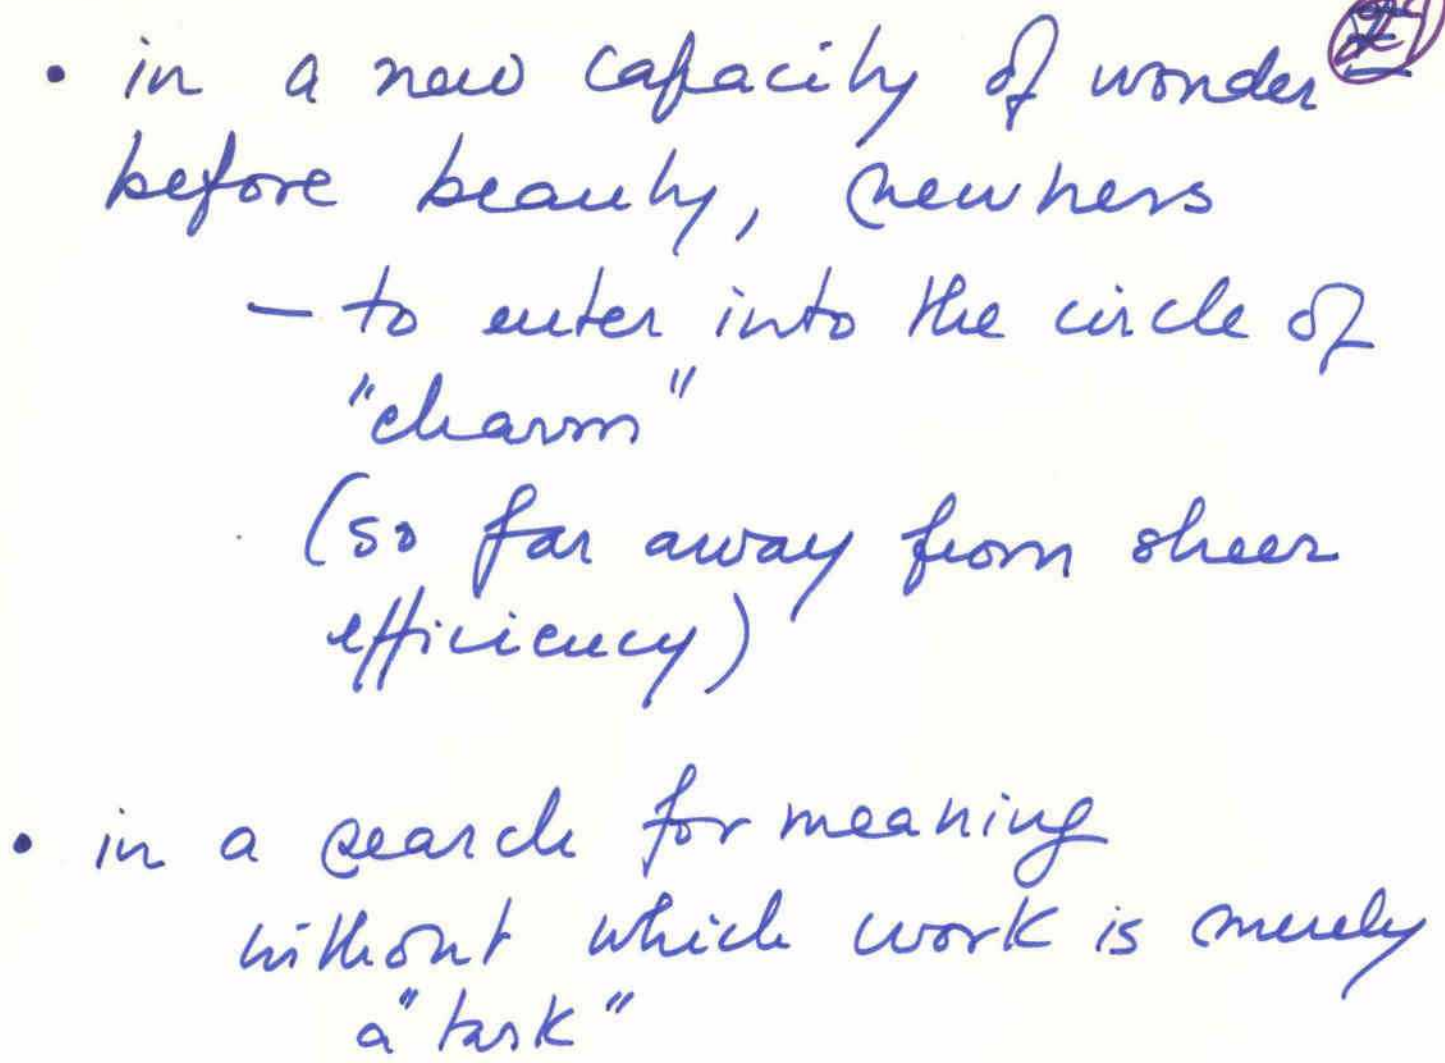 • in a new capacity of wonder
before beauty, newness
— to enter into the circle of
"charm"
(so far away from sheer
efficiency)
• in a search for meaning
without which work is merely
a "task"